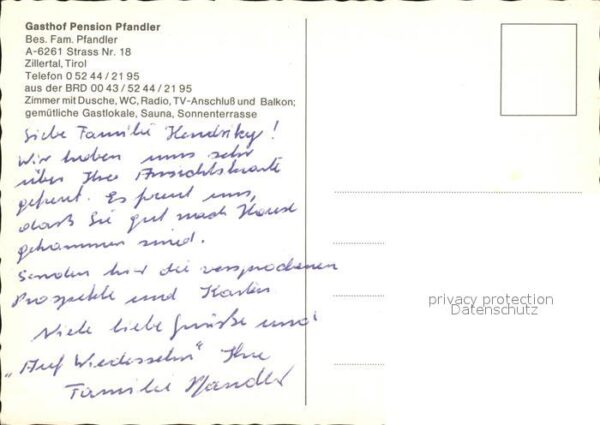 Gasthof Pension Pfandler
Bes. Fam. Pfandler
A-6261 Strass Nr. 18
Zillertal, Tirol
Telefon 0 52 44 / 21 95
aus der BRD 00 43 / 52 44 / 21 95
Zimmer mit Dusche, WC, Radio, TV-Anschluß und Balkon;
gemütliche Gastlokale, Sauna, Sonnenterrasse
Liebe Familie !
Wir haben uns sehr
über Ihre Ansichtskarte
gefreut. Es freut uns,
dass Sie gut nach Hause
gekommen sind.
Senden hier die versprochenen
Prospekte und Karten
Viele liebe Grüße und
„Auf Wiedersehn" Ihre
Familie Pfandler
privacy protection
Datenschutz